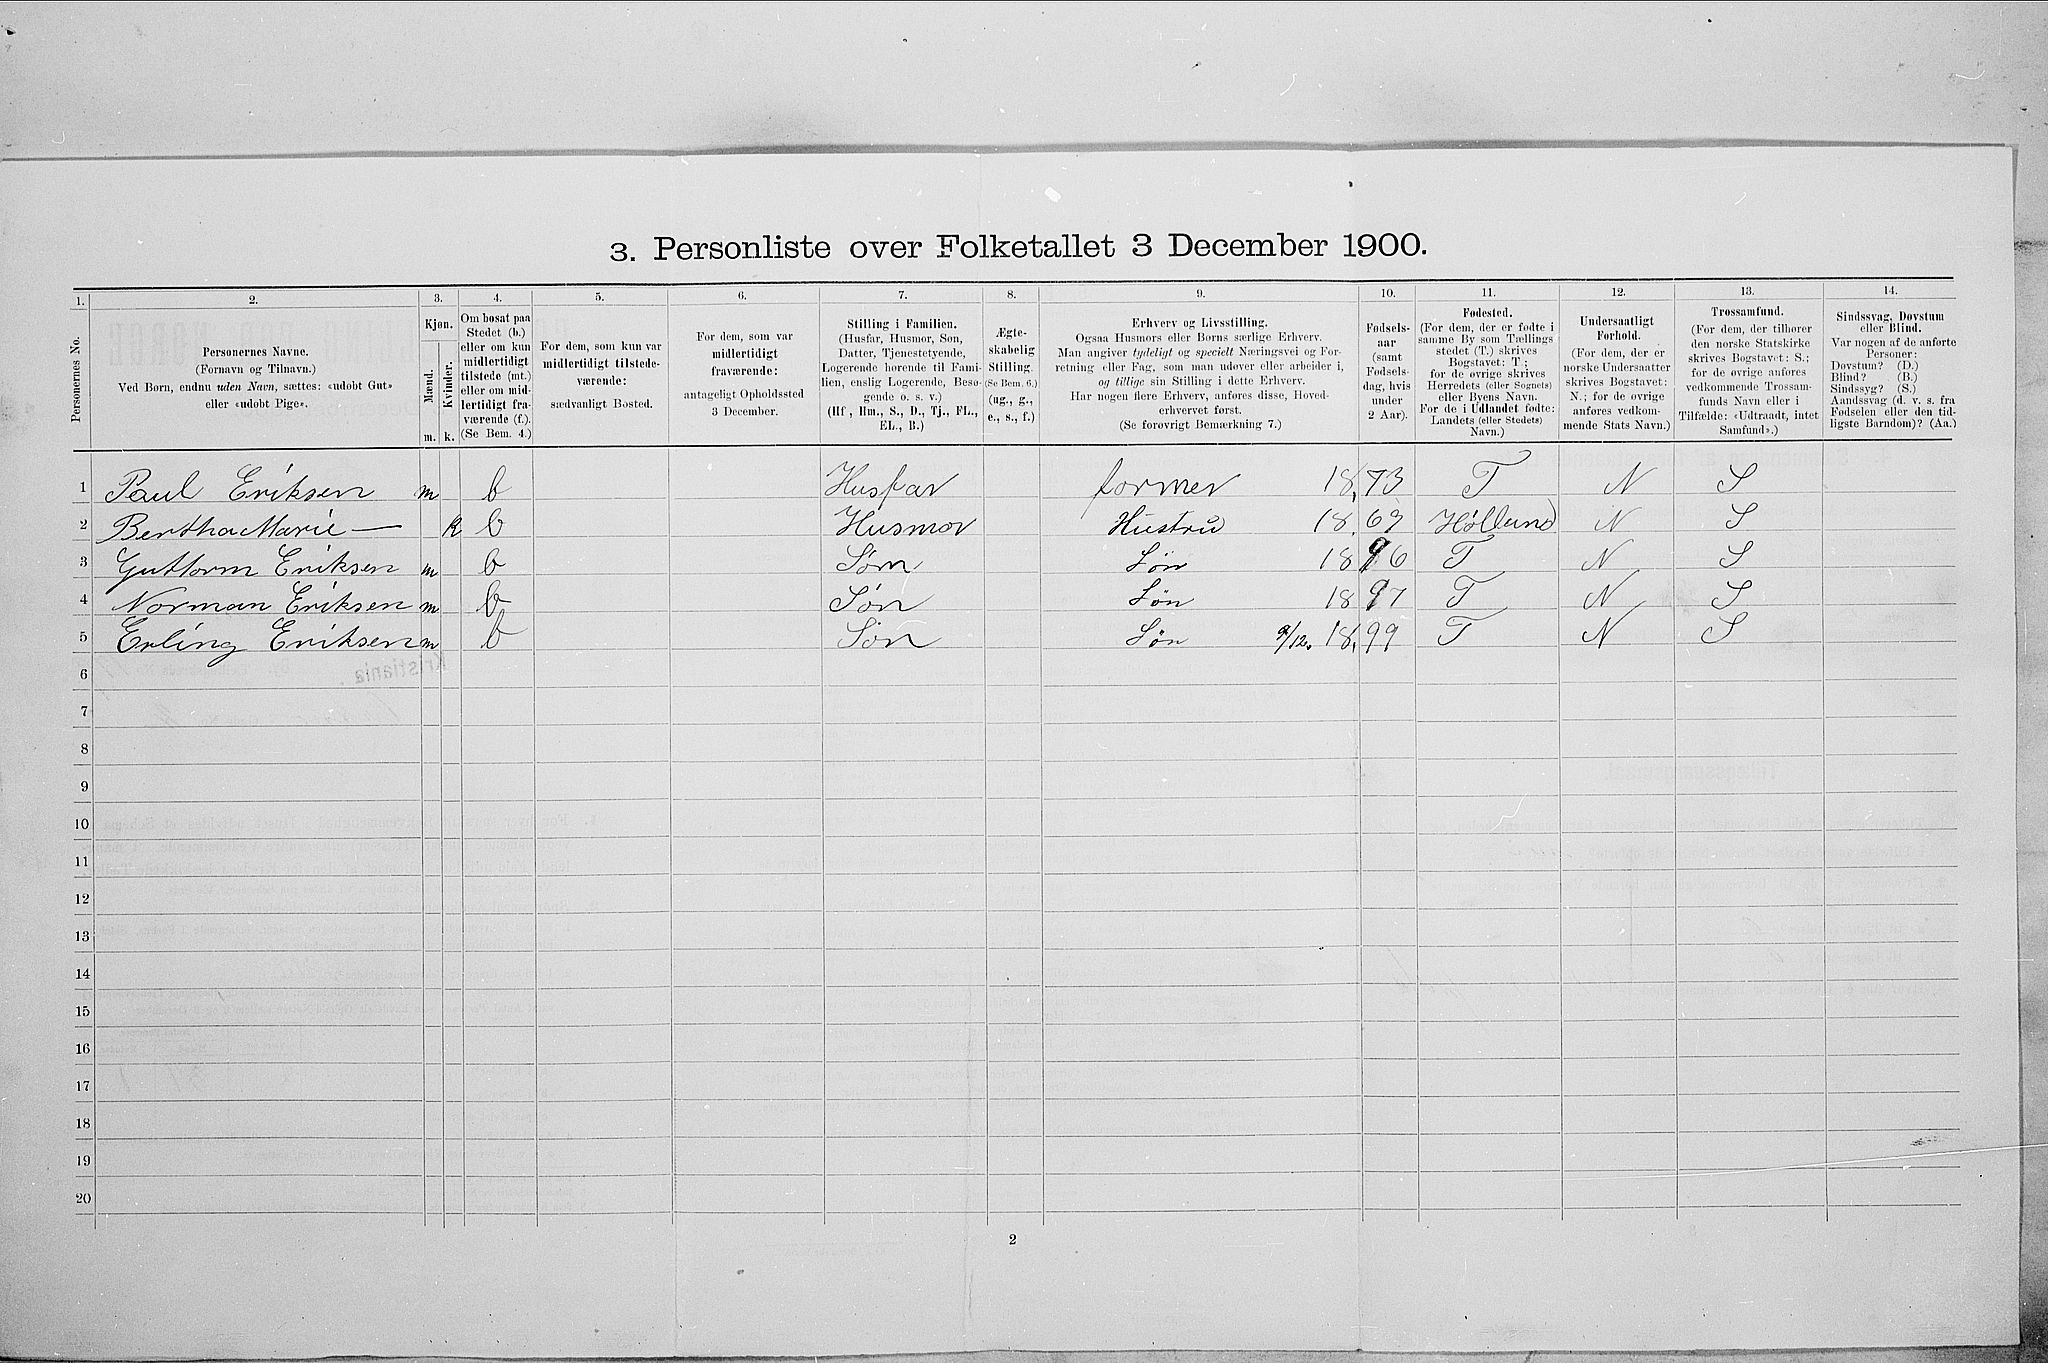 3. Personliste over Folketallet 3 December 1900.
1. 2. 3. 4. 5. 6. 7. 8. 9. 10. 11. 12. 13. 14.
Personernes No.
Personernes Navne.
(Fornavn og Tilnavn.)
Ved Børn, endnu uden Navn, sættes: «udøbt Gut»
eller «udøbt Pige».
Kjøn.
Mænd.
Kvinder.
m. k.
Om bosat paa
Stedet (b.)
eller om kun
midlertidigt
tilstede (mt.)
eller om mid-
lertidigt fra-
værende (f.).
(Se Bem. 4.)
For dem, som kun var
midlertidigt tilstede-
værende:
sædvanligt Bosted.
For dem, som var
midlertidigt
fraværende:
antageligt Opholdssted
3 December.
Stilling i Familien.
(Husfar, Husmor, Søn,
Datter, Tjenestetyende,
Logerende hørende til Fami-
lien, enslig Logerende, Besø-
gende o. s. v.)
(Hf., Hm., S., D., Tj., FL.,
EL., B.)
Ægte-
skabelig
Stilling.
(Se Bem. 6.)
(ug., g.,
e., s., f.)
Erhverv og Livsstilling.
Ogsaa Husmors eller Børns særlige Erhverv.
Man angiver tydeligt og specielt Næringsvei og For-
retning eller Fag, som man udøver eller arbeider i,
og tillige sin Stilling i dette Erhverv.
Har nogen flere Erhverv, anføres disse, Hoved-
erhvervet først.
(Se forøvrigt Bemærkning 7.)
Fødsels-
aar
(samt
Fødsels-
dag, hvis
under
2 Aar).
Fødested.
(For dem, der er fødte i
samme By som Tællings-
stedet (T.) skrives
Bogstavet: T;
for de øvrige skrives
Herredets (eller Sognets)
eller Byens Navn.
For de i Udlandet fødte:
Landets (eller Stedets)
Navn.)
Undersaatligt
Forhold.
(For dem, der er
norske Undersaatter
skrives Bogstavet:
N.; for de øvrige
anføres vedkom-
mende Stats Navn.)
Trossamfund.
(For dem, der tilhører
den norske Statskirke
skrives Bogstavet: S.;
for de øvrige anføres
vedkommende Trossam-
funds Navn eller i
Tilfælde: «Udtraadt, intet
Samfund».)
Sindssvag, Døvstum
eller Blind.
Var nogen af de anførte
Personer:
Døvstum? (D.)
Blind? (B.)
Sindssyg? (S.)
Aandssvag (d. v. s. fra
Fødselen eller den tid-
ligste Barndom)? (Aa.)
1 Paul Eriksen m b Husfar former 1873 T N S
2 Bertha Marie — k b Husmor Hustru 1869 Hølland N S
3 Guttorm Eriksen m b Søm Søn 1896 T N S
4 Norman Eriksen m b Søn Søn 1897 T N S
5 Erling Eriksen m b Søn Søn 9/12. 1899 T N S
6
Kristiania.
7
8
9
10
11
12
13
14
15
16
17
18
19
20
2